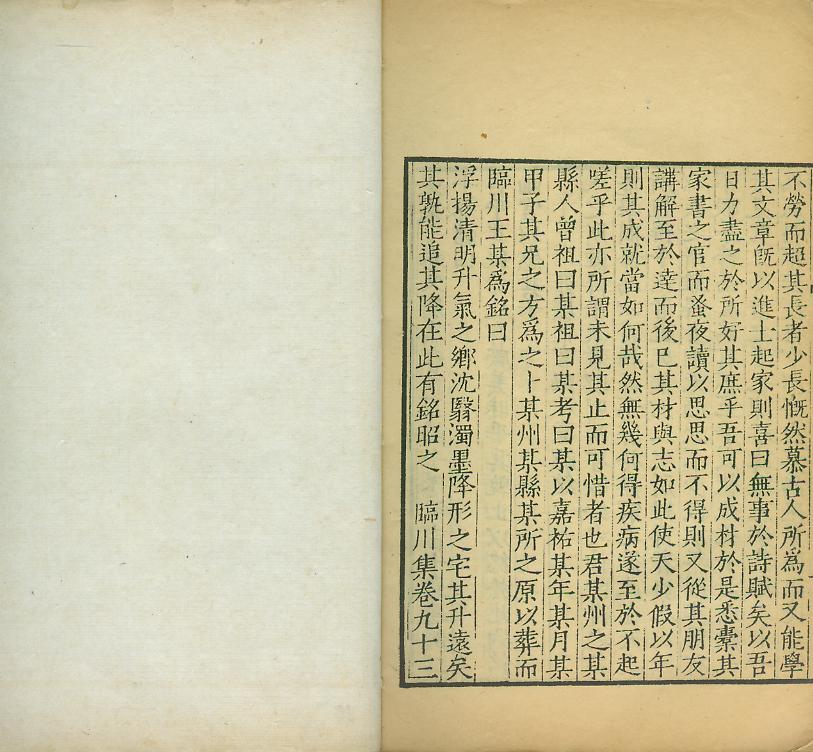 不勞而超其長者少長慨然慕古人所爲而又能學
其文章旣以進士起家則喜曰無事於詩賦矣以吾
日力盡之於所好其庶乎吾可以成材於是悉橐其
家書之官而蚤夜讀以思思而不得則又從其朋友
講解至於達而後已其材與志如此使天少假以年
則其成就當如何哉然無幾何得疾病遂至於不起
嗟乎此亦所謂未見其止而可惜者也君某州之某
縣人曾祖曰某祖曰某考曰某以嘉祐某年某月某
甲子其兄之方爲之卜某州某縣某所之原以葬而
臨川王某爲銘曰
浮揚清明升氣之鄉沈翳濁墨降形之宅其升遠矣
其孰能追其降在此有銘昭之　臨川集卷九十三